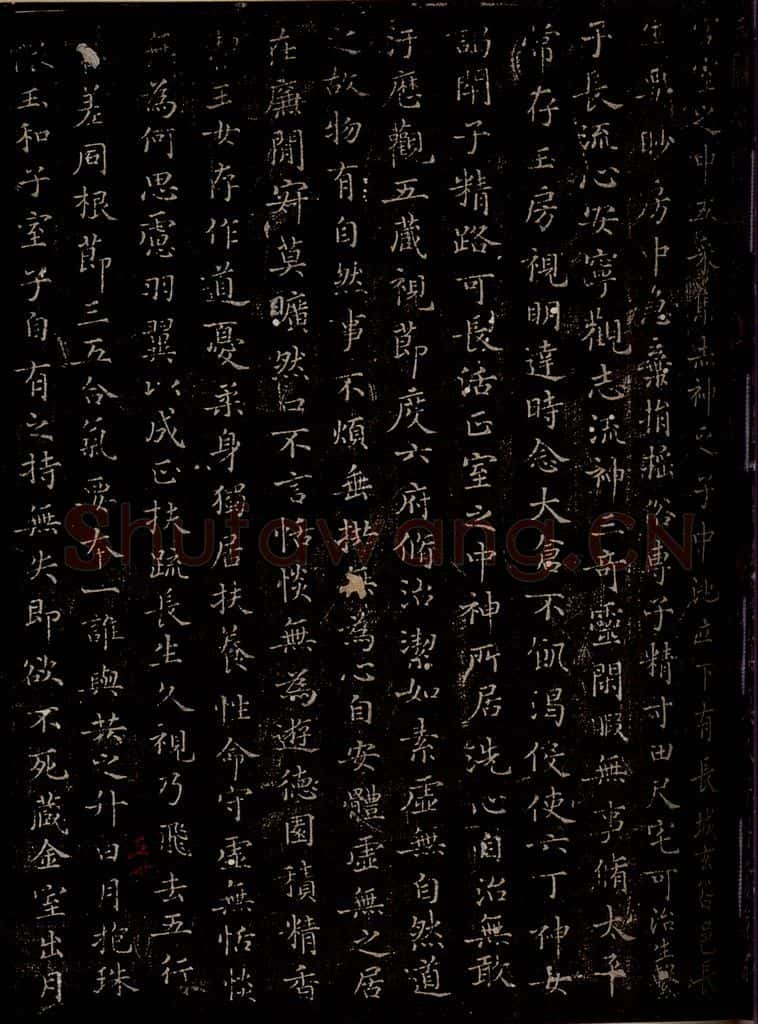 室之中五采集赤神之子中池立下有長城玄谷邑長
生要眇房中急棄捐搖俗專子精寸田尺宅可治生繫
子長流心安寧觀志流神三奇靈閑暇無事脩太平
常存玉房視明達時念大倉不飢渴役使六丁神女
謁閉子精路可長活正室之中神所居洗心自治無敢
汙歷觀五藏視節度六府脩治潔如素虛無自然道
之故物有自然事不煩垂拱無為心自安體虛無之居
在廉間寂莫曠然口不言恬惔無為遊德園積精香
潔玉女存作道憂柔身獨居扶養性命守虛無恬惔
無為何思慮羽翼以成正扶疏長生久視乃飛去五行
參差同根節三五合氣要本一誰與共之升日月抱珠
懷玉和子室子自有之持無失即欲不死藏金室出月
Shufawang.CN